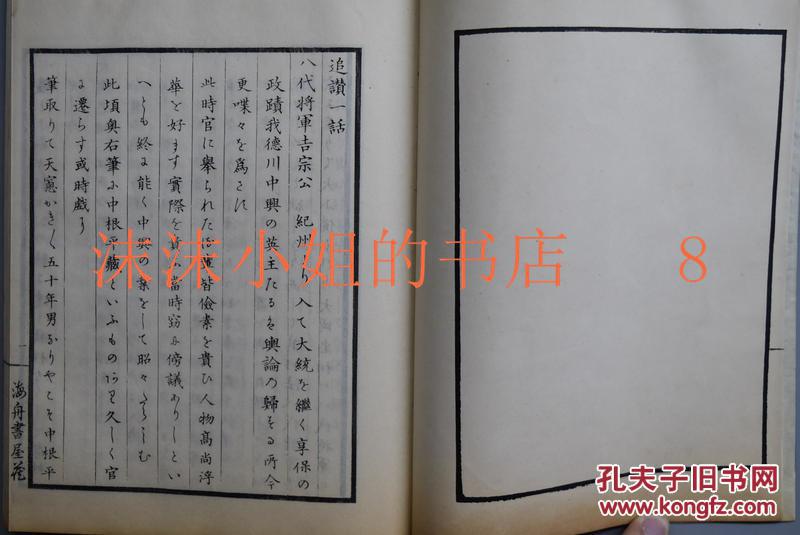 追讃一話
八代将軍吉宗公 紀州より入て大統を繼く享保の
政蹟我德川中興の英主たるは輿論の歸する所今
更喋々を爲さす
此時官に舉られたる
皆儉素を貴ひ人物高尚浮
華を好ます實際を貴ふ當時窃に傍議ありしとい
へとも終に能く中興の業をして昭々たらしむ
此頃奥右筆に中根平藏といふもの
久しく官
に遷らす或時戯に
筆取りて天窓かきく五十年男なりやこそ中根平
海舟書屋藏
沫沫小姐的书店 8
孔夫子旧书网
kongfz.com